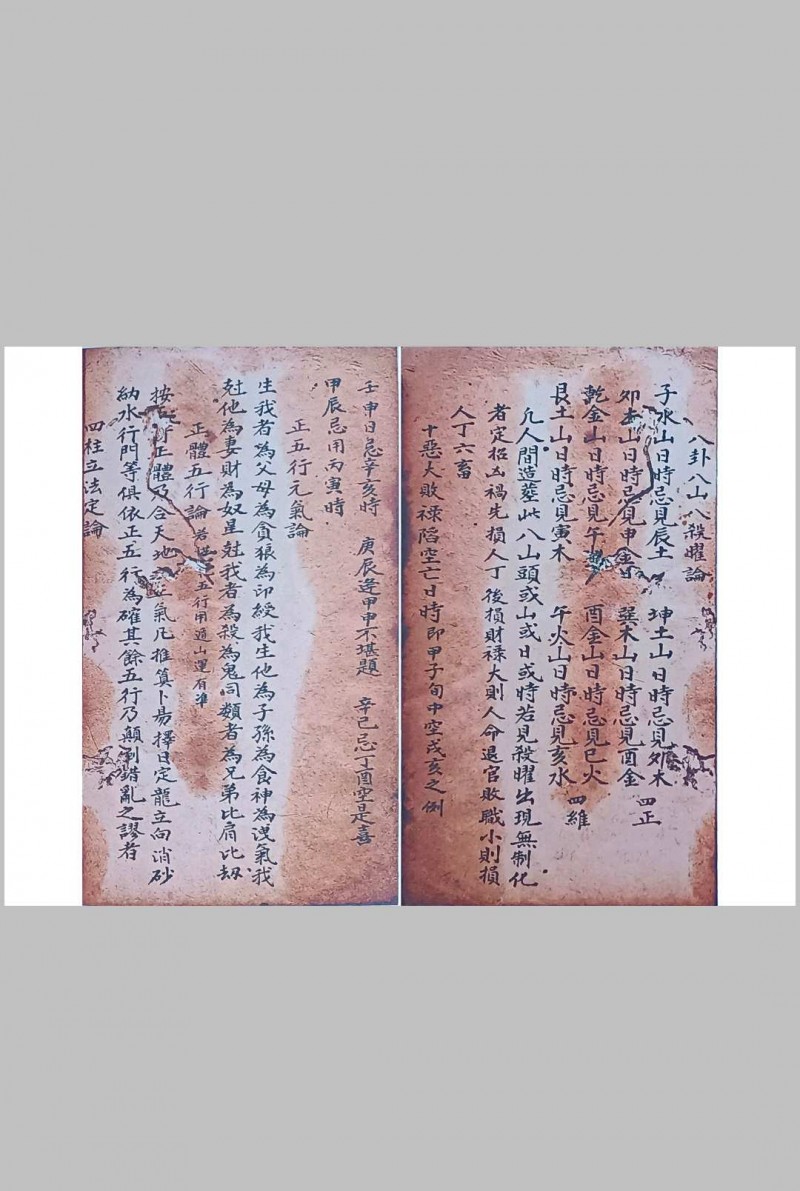 八卦八山八殺曜論
子水山日時忌見辰土 坤土山日時忌見夘木
夘木山日時忌見申金 巽木山日時忌見酉金 四正
乾金山日時忌見午 酉金山日時忌見巳火
艮土山日時忌見寅木 午火山日時忌見亥水 四維
凢人間造塟此八山頭或山或日或時若見殺曜出現無制化
者定招凶禍先損人丁後損財祿大則人命退官敗職小則損
人丁六畜
十惡大敗祿陷空亡日時即甲子旬中空戍亥之例
壬申日忌辛亥時 庚辰逢甲申不堪題 辛巳忌丁酉空是喜
甲辰忌用丙寅時
正五行元氣論
生我者為父母為貪狼為印綬我生他為子孫為食神為洩氣我
尅他為妻財為奴星尅我者為殺為鬼同類者為兄弟比肩比劫
正體五行論 若 五行用遁山運有准
按 正體乃合天地 氣凢推算卜昜擇日定龍立向消砂
納水行門等俱依正五行為確其餘五行乃顛倒錯亂之謬者
四柱立法定論